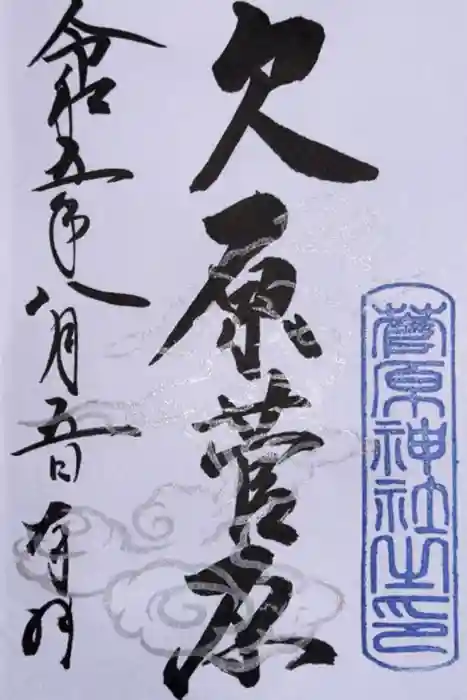 菅原神社之印
欠原菅原
令和五年八月五日 奉拝